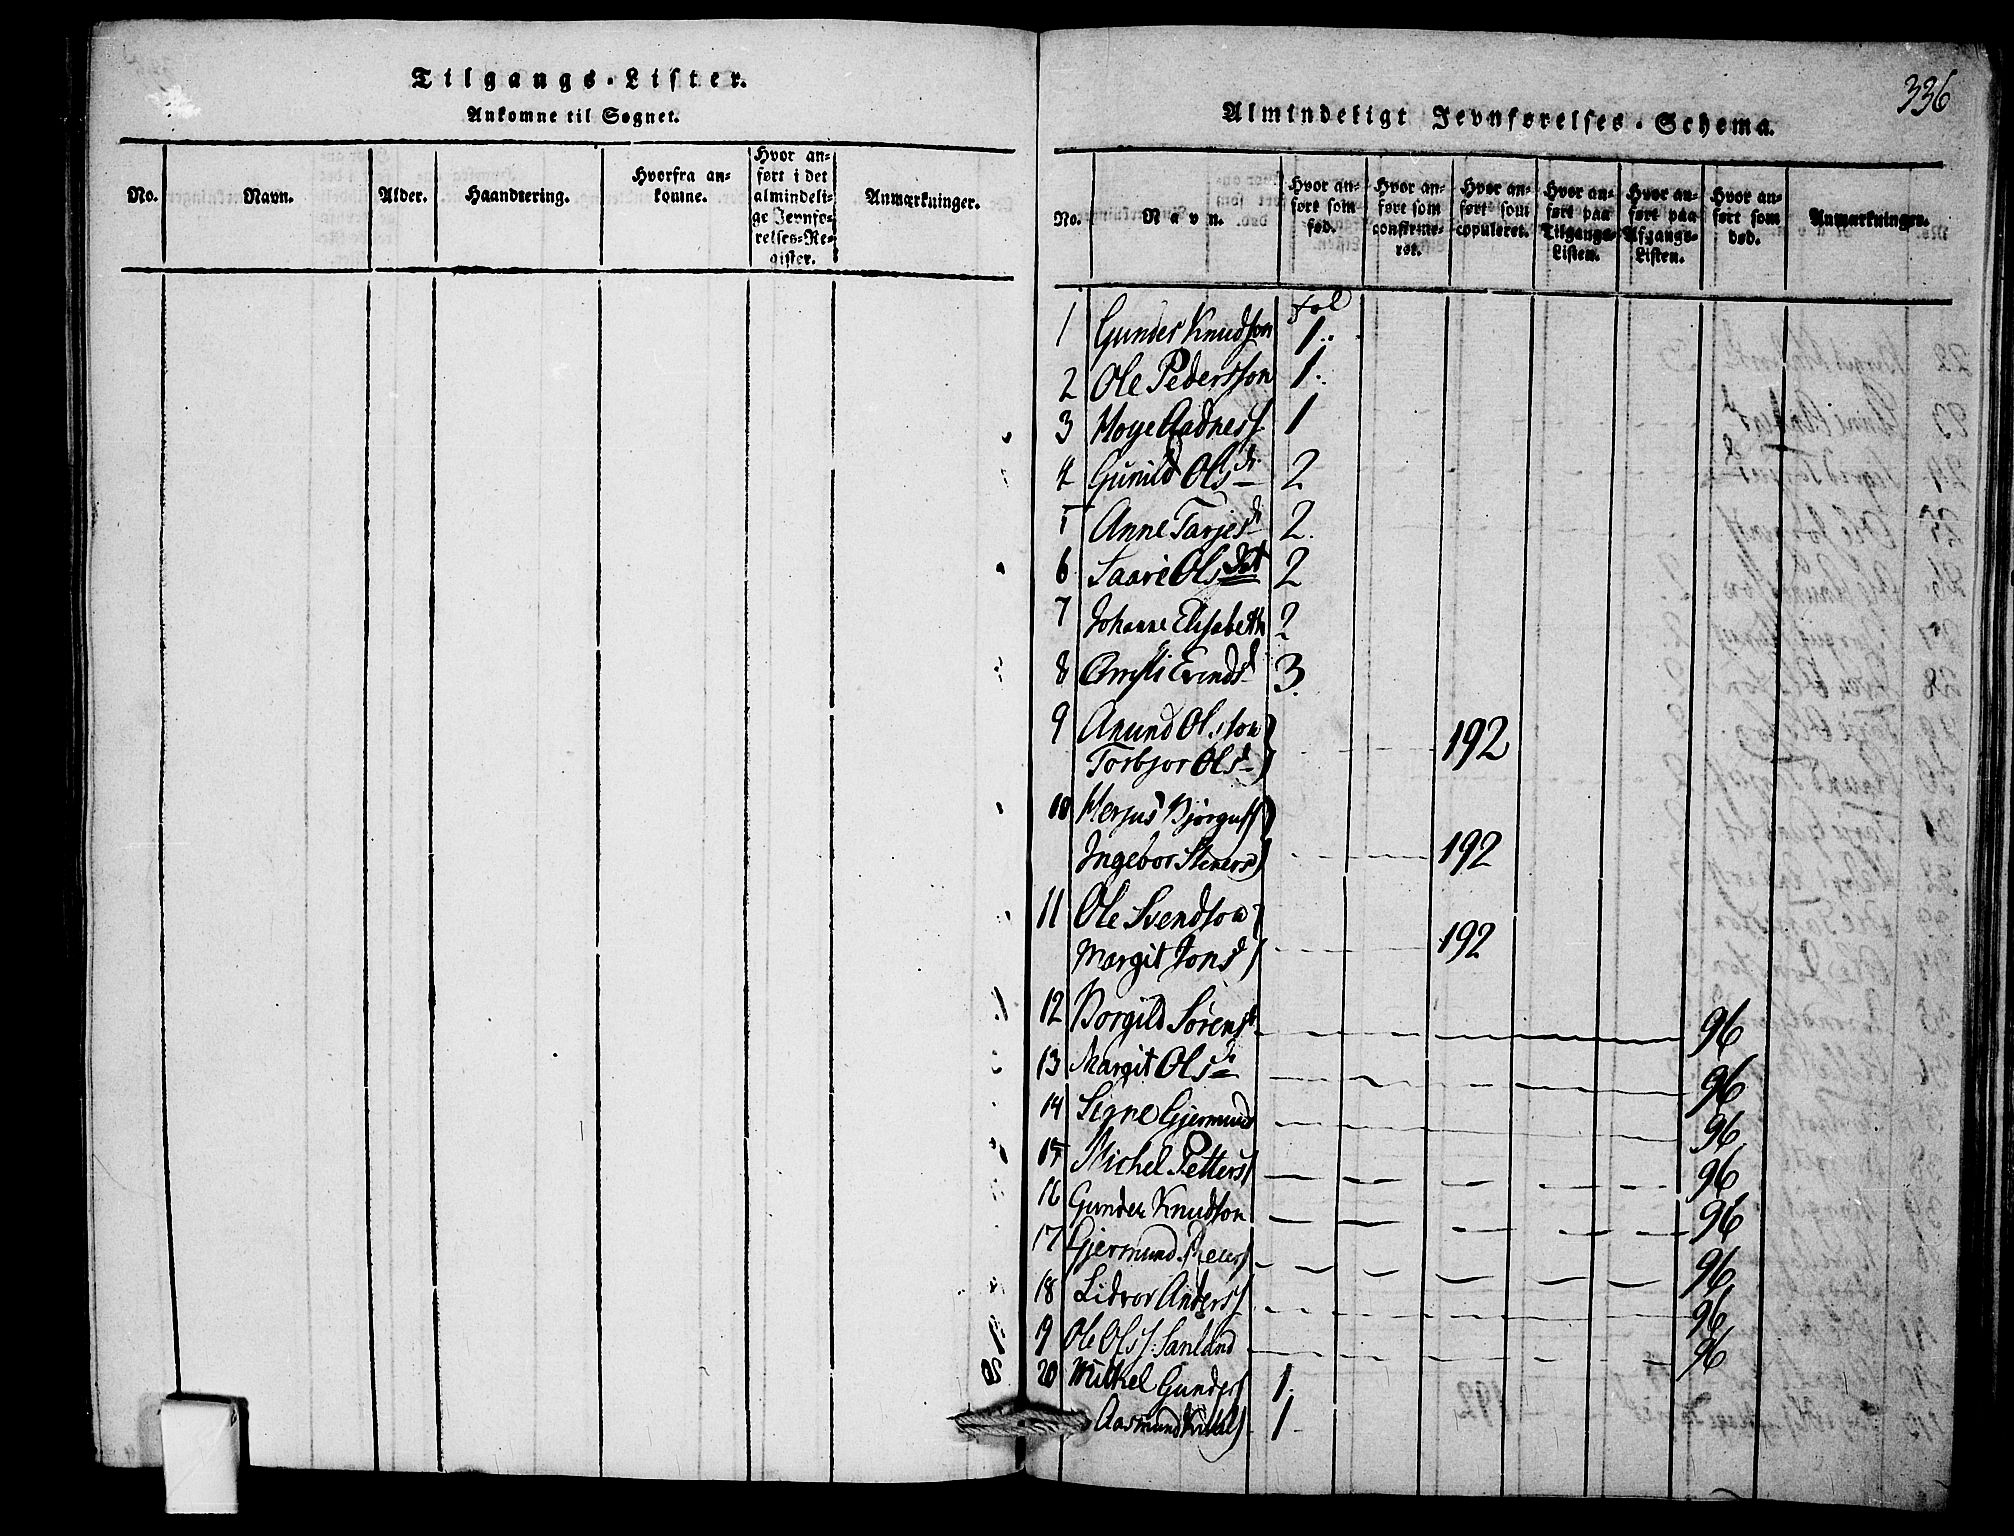 Tilgangs-Lister.
Ankomne til Sognet.
No. Navn. Alder. Haandtering. Hvorfra ankomne. Hvor anført i det almindelige Jevnførelses-Register. Anmærkninger.
336
Almindeligt Jevnførelses-Schema.
No. Navn. Hvor anført som fød. Hvor anført som confirmeret. Hvor anført som copuleret. Hvor anført paa Tilgangs-Listen. Hvor anført paa Afgangs-Listen. Hvor anført som død. Anmærkninger.
fol
1 Gunder Knudson 1.
2 Ole Pedersson 1.
3 Hoye Aadness 1
4 Gunild Olsdr 2
5 Anne Tarjesd 2.
6 Saave Olsdat 2
7 Johanne Elisabeth 2
8 Evindsd 3.
9 Anund Olsson
Torbjor Olsd 192
10 Herjus Bjørgufs
Ingebor Steners 192
11 Ole Svendson
Margit Jonsd 192
12 Borgild Sørensd 96
13 Margit Olsdr 96
14 Signe Gjermunds 96
15 Michel Petters 96
16 Gunder Knudson 96
17 Gjermund 96
18 Lidvor Anders 96
19 Ole Ols Sanland 96
20 Mitkel Gunders 1.
Aasmund 1